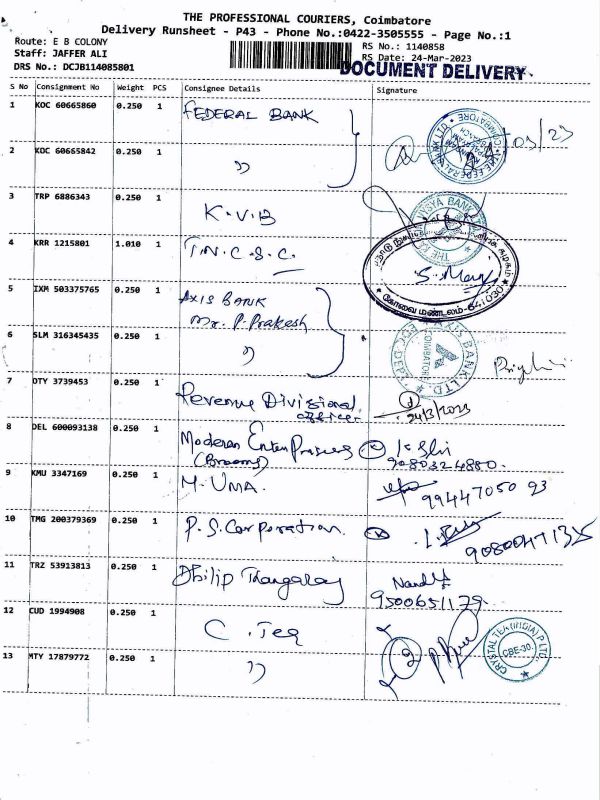 THE PROFESSIONAL COURIERS, Coimbatore
Delivery Runsheet - P43 - Phone No.:0422-3505555 - Page No.:1
Route: E B COLONY
RS No.: 1140858
Staff: JAFFER ALI
RS Date: 24-Mar-2023
DRS No.: DCJB114085801
DOCUMENT DELIVERY
S No Consignment No Weight PCS Consignee Details Signature
1 KOC 60665860 0.250 1 FEDERAL BANK
2 KOC 60665842 0.250 1 "
3 TRP 6886343 0.250 1 K.V.B
4 KRR 1215801 1.010 1 T.N.C.S.C.
S. Mary
கோவை மண்டலம்-641030
5 IXM 503375765 0.250 1 AXIS BANK
Mr. P. Prakesh
6 SLM 316345435 0.250 1 "
AXIS BANK LTD.
COIMBATORE
7 OTY 3739453 0.250 1 Revenue Divisional
office
24/3/2023
8 DEL 600093138 0.250 1 Modern Enterprises
(Brooms)
9080324880.
9 KMU 3347169 0.250 1 M. UMA.
99447050 93
10 TMG 200379369 0.250 1 P.S. Corporation.
11 TRZ 53913813 0.250 1 Dhilip Thangaraj
9500651179.
12 CUD 1994908 0.250 1 C. Teq
CRYSTAL TEQ (INDIA) P LTD.
CBE-30.
13 MTY 17879772 0.250 1 "